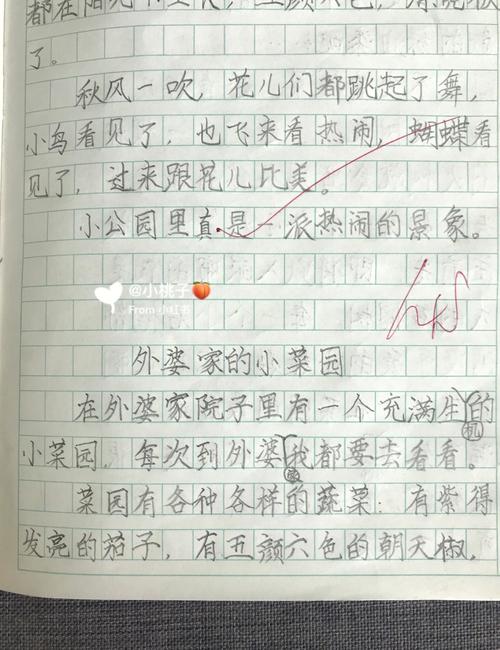 都在阳光下生长，五颜六色，
了。
秋风一吹，花儿们都跳起了舞，
小鸟看见了，也飞来看热闹，蝴蝶看
见了，过来跟花儿比美。
小公园里真是一派热闹的景象。
@小桃子🍑
From 小红书
外婆家的小菜园
在外婆家院子里有一个充满生机的
小菜园，每次到外婆家我都要去看看。
菜园有各种各样的蔬菜：有紫得
发亮的茄子，有五颜六色的朝天椒，